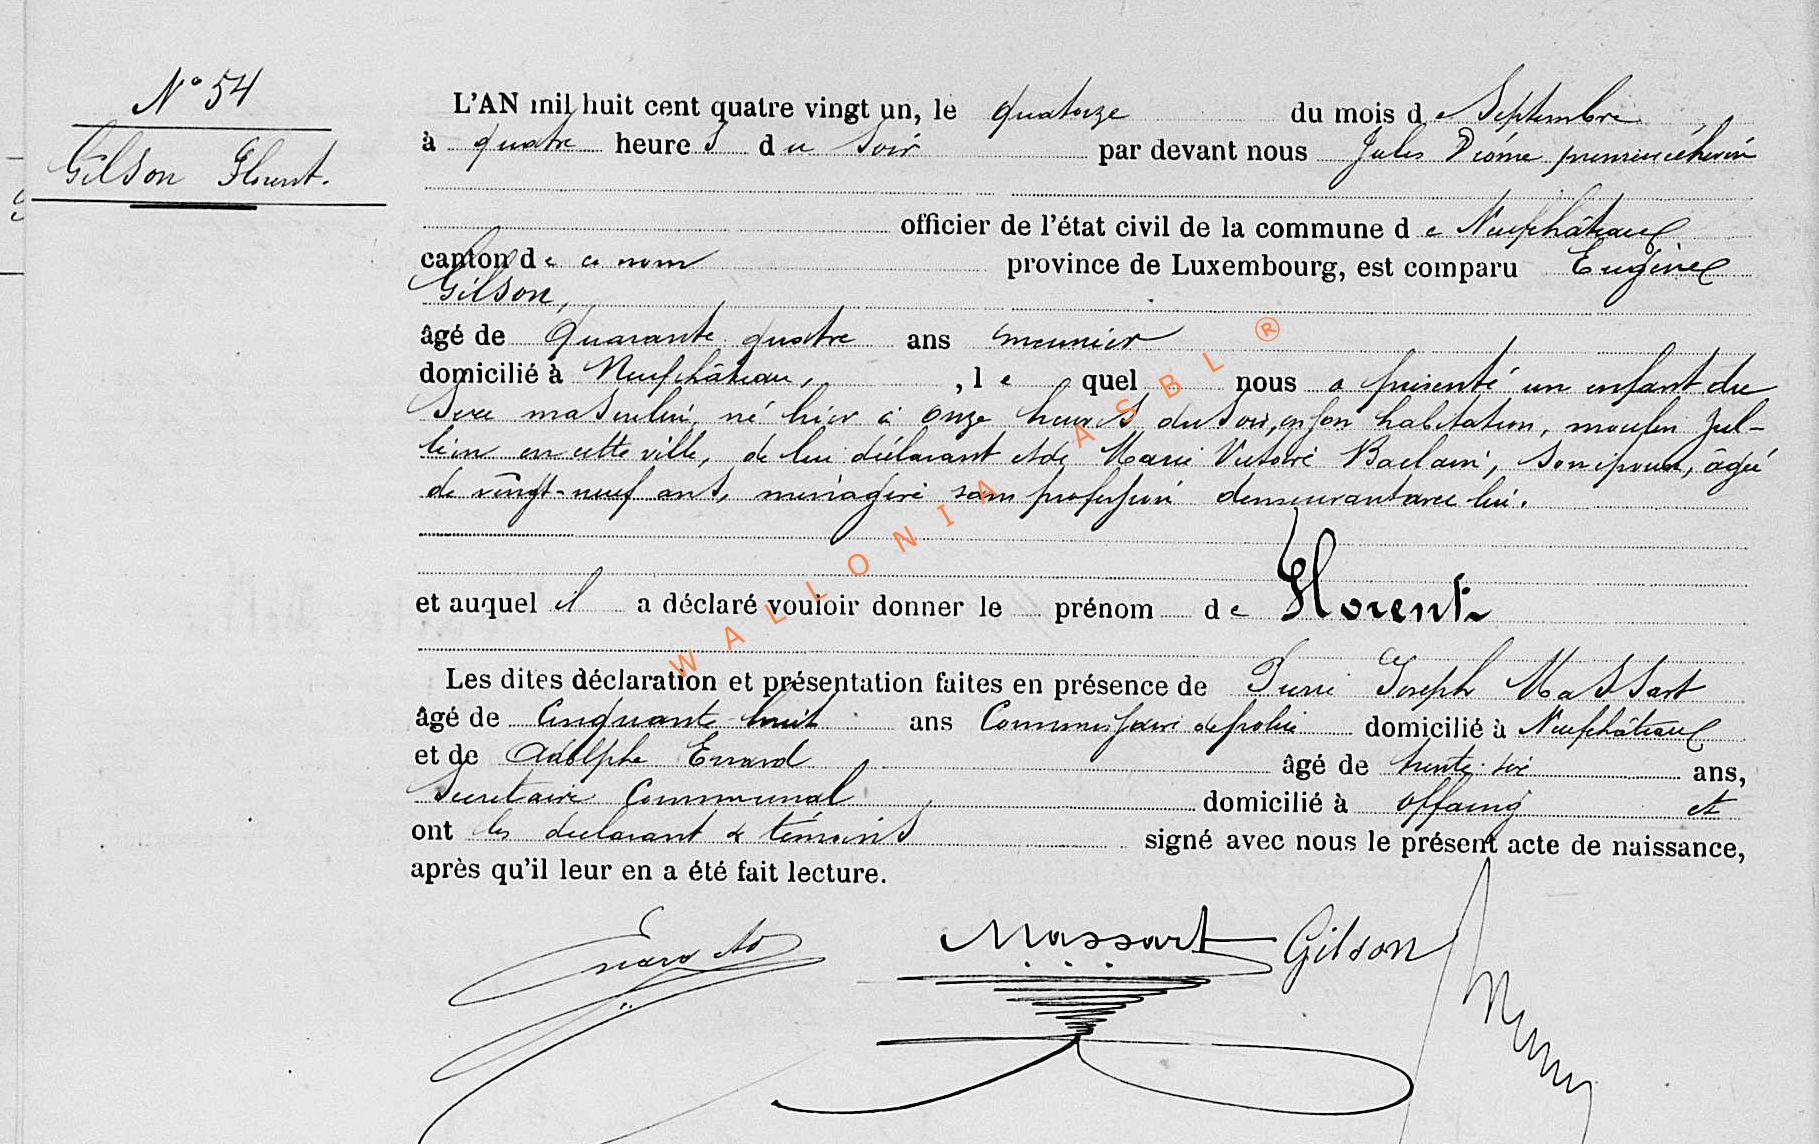 N° 54
Gilson Florent.
L'AN mil huit cent quatre vingt un, le quatorze du mois de Septembre
à quatre heures du soir par devant nous Jules Diôme, premier échevin
officier de l'état civil de la commune de Neufchâteau
canton de ce nom province de Luxembourg, est comparu Eugène
Gilson,
âgé de quarante quatre ans meunier
domicilié à Neufchâteau, , le quel nous a présenté un enfant du
sexe masculin, né hier à onze heures du soir, en son habitation, moulin Jul-
lien en cette ville, de lui déclarant et de Marie Victoire Baclain, son épouse, âgée
de vingt-neuf ans, ménagère sans profession demeurant avec lui.
et auquel il a déclaré vouloir donner le prénom de Florent
Les dites déclaration et présentation faites en présence de Pierre Joseph Massart
âgé de cinquante huit ans Commissaire de police domicilié à Neufchâteau
et de Adolphe Evrard âgé de trente six ans,
Secrétaire Communal domicilié à Offaing et
ont les déclarant & témoins signé avec nous le présent acte de naissance,
après qu'il leur en a été fait lecture.
Massart Gilson
WALLONIA ASBL ®